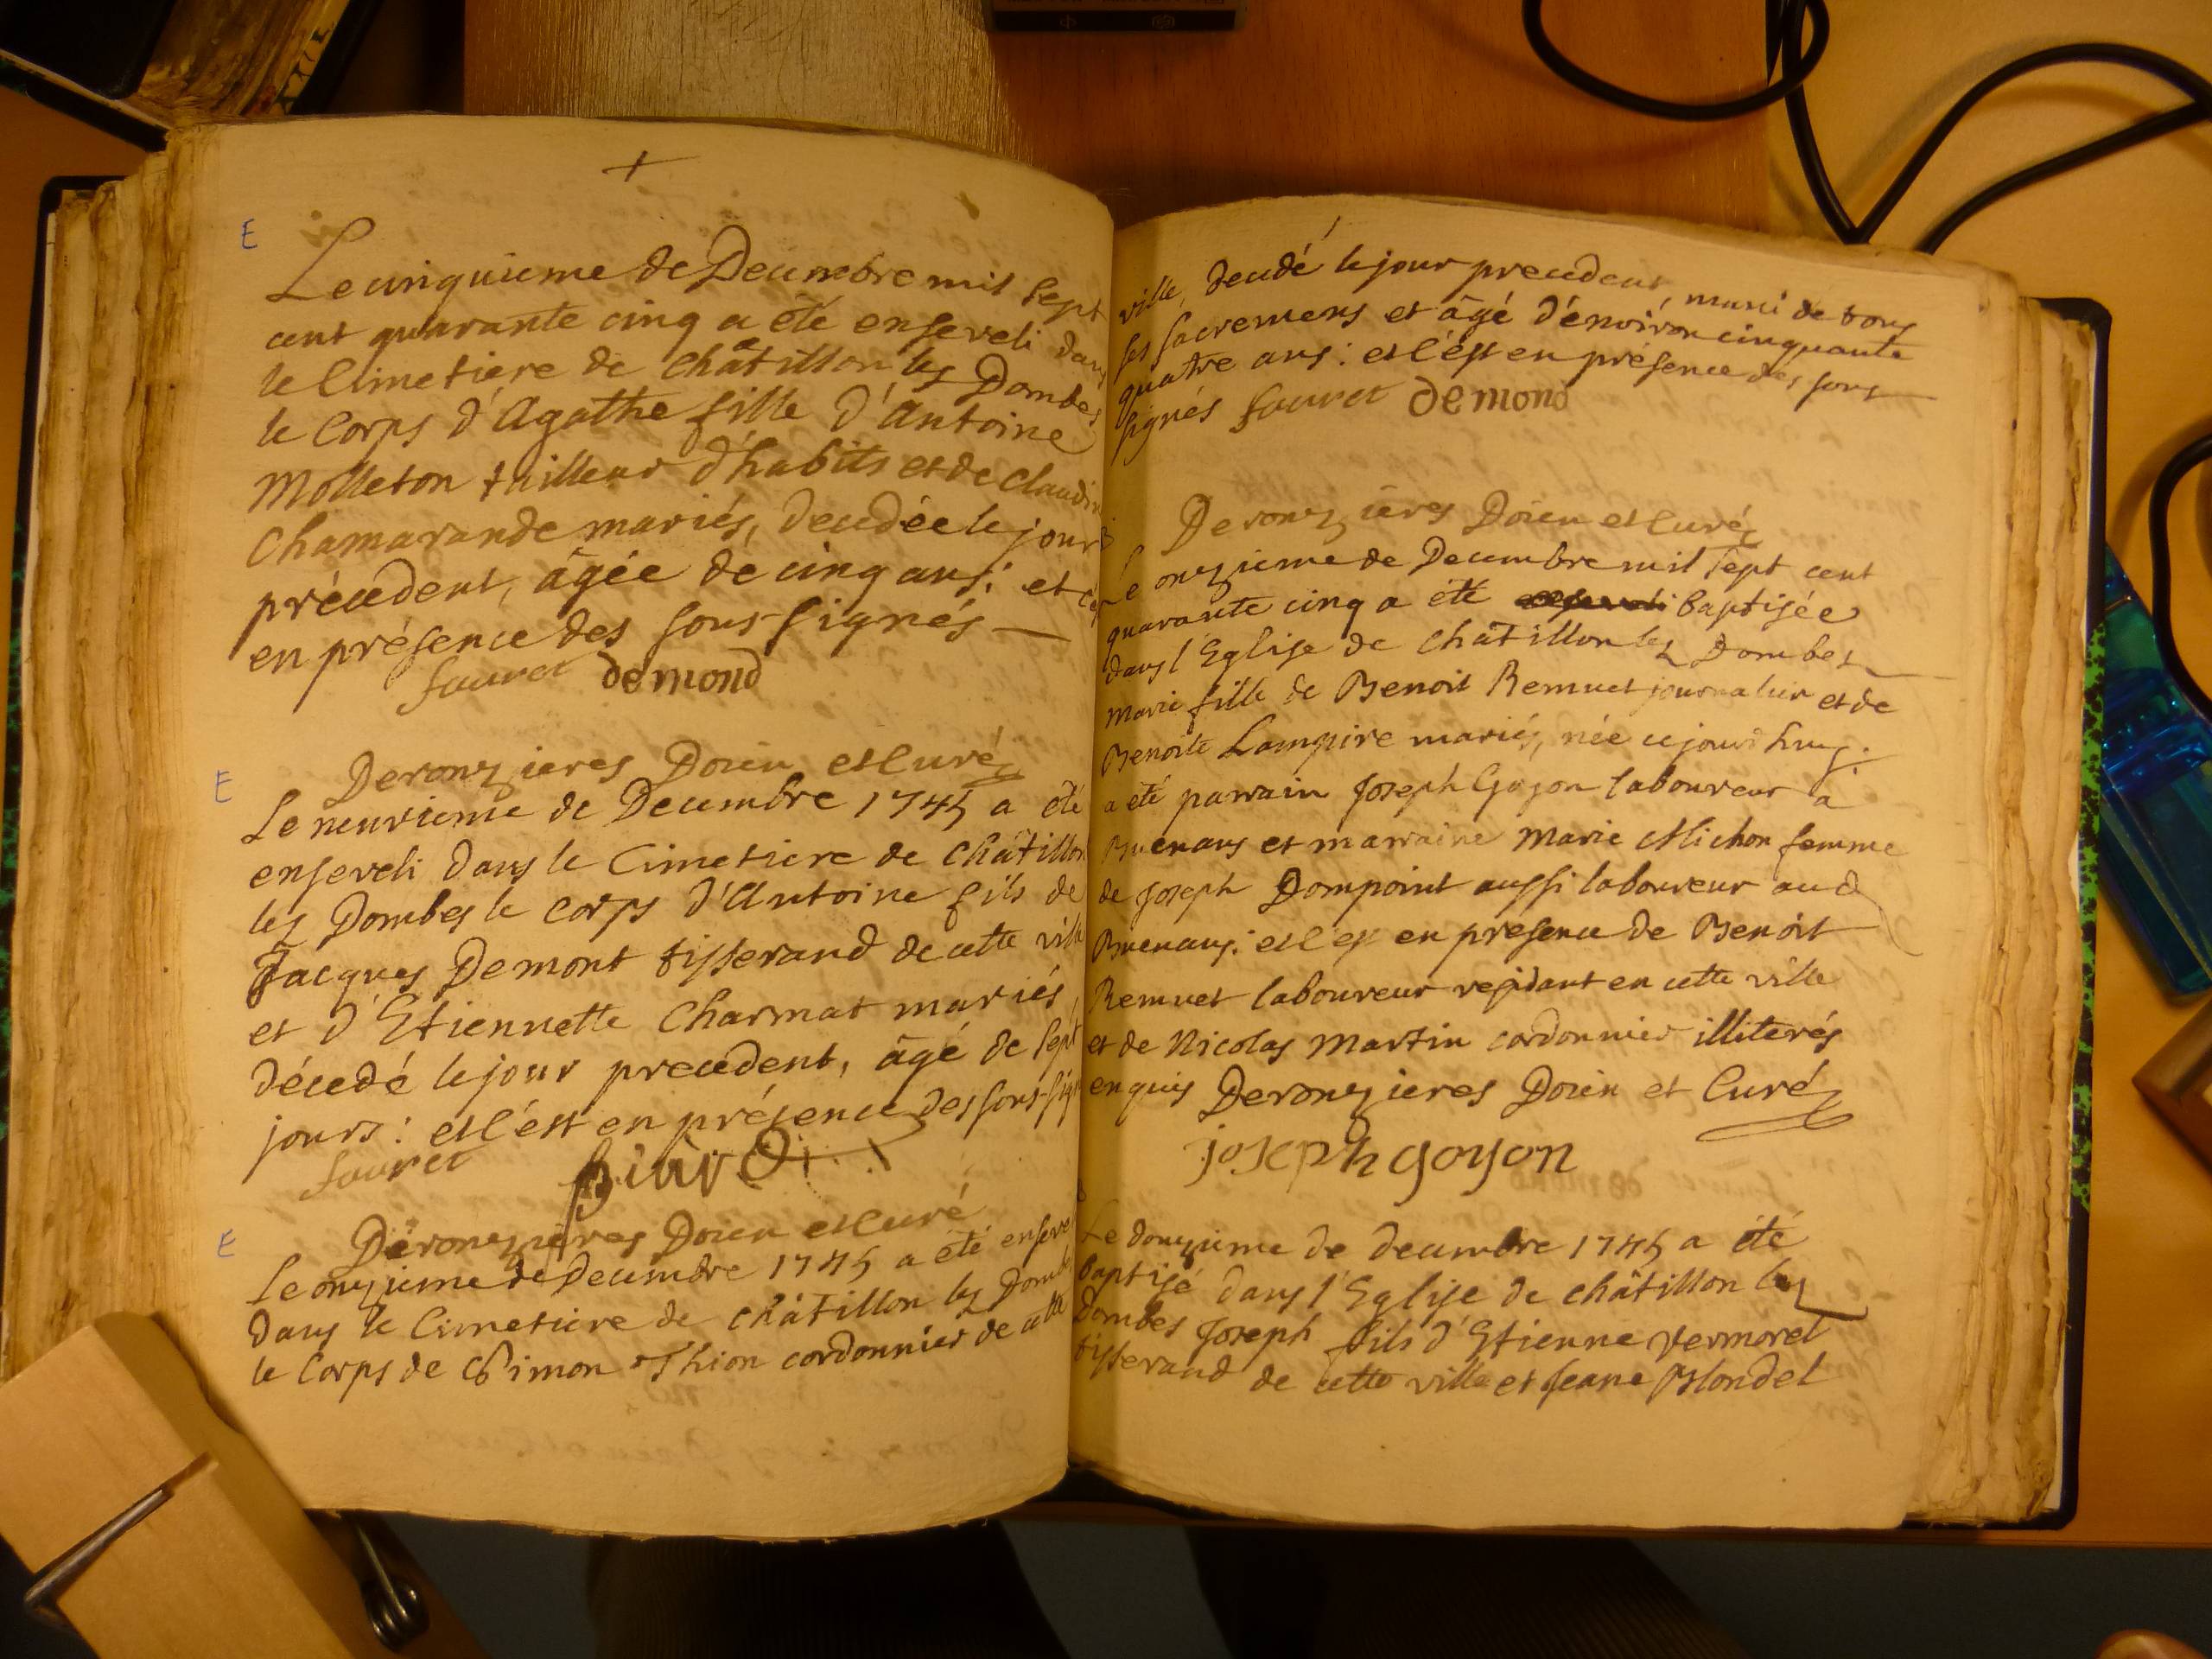 +
E
Le cinquieme de Decembre mil sept
cent quarante cinq a été enseveli dans
le Cimetiere de Châtillon les Dombes
le Corps d'Agathe fille d'Antoine
Molleton tailleur d'habits et de Claudine
Chamarande mariés, decedée le jour
précedent, âgée de cinq ans: et c'est
en présence des sous-signés
fauret demond
Deronzieres Doien et Curé
E
Le neuvieme de Decembre 1745 a été
enseveli dans le Cimetiere de Châtillon
les Dombes le Corps d'Antoine fils de
Jacques Demont tisserand de cette ville
et d'Etiennette Charmat mariés,
décedé le jour precedent, âgé de sept
jours: et c'est en présence des sous-sign
fauret
Deronzieres Doien et Curé
E
Le onzieme de Decembre 1745 a été enseveli
dans le Cimetiere de Châtillon les Dombes
le Corps de Simon Thion cordonnier de cette
ville, decedé le jour precedent, muni de tous
ses sacremens et âgé d'environ cinquante
quatre ans: et c'est en présence des sous
signés fauret demond
Deronzieres Doien et Curé
Le onzieme de Decembre mil sept cent
quarante cinq a été baptisée
dans l'Eglise de Châtillon les Dombes
marie fille de Benoit Remuet journalier et de
Benoite Lampire mariés, née cejourd'huy.
a été parrain Joseph Goyon laboureur a
Buenans et marraine Marie Michon femme
de Joseph Dompoint aussi laboureur aud
Buenans: et c'est en presence de Benoit
Remuet laboureur residant en cette ville
et de Nicolas Martin cordonnier illiterés
enquis Deronzieres Doien et Curé
joseph goyon
Le douzieme de decembre 1745 a été
baptisé dans l'Eglise de châtillon les
Dombes Joseph fils d'Etienne Vermorel
tisserand de cette ville et Jeane Blondel